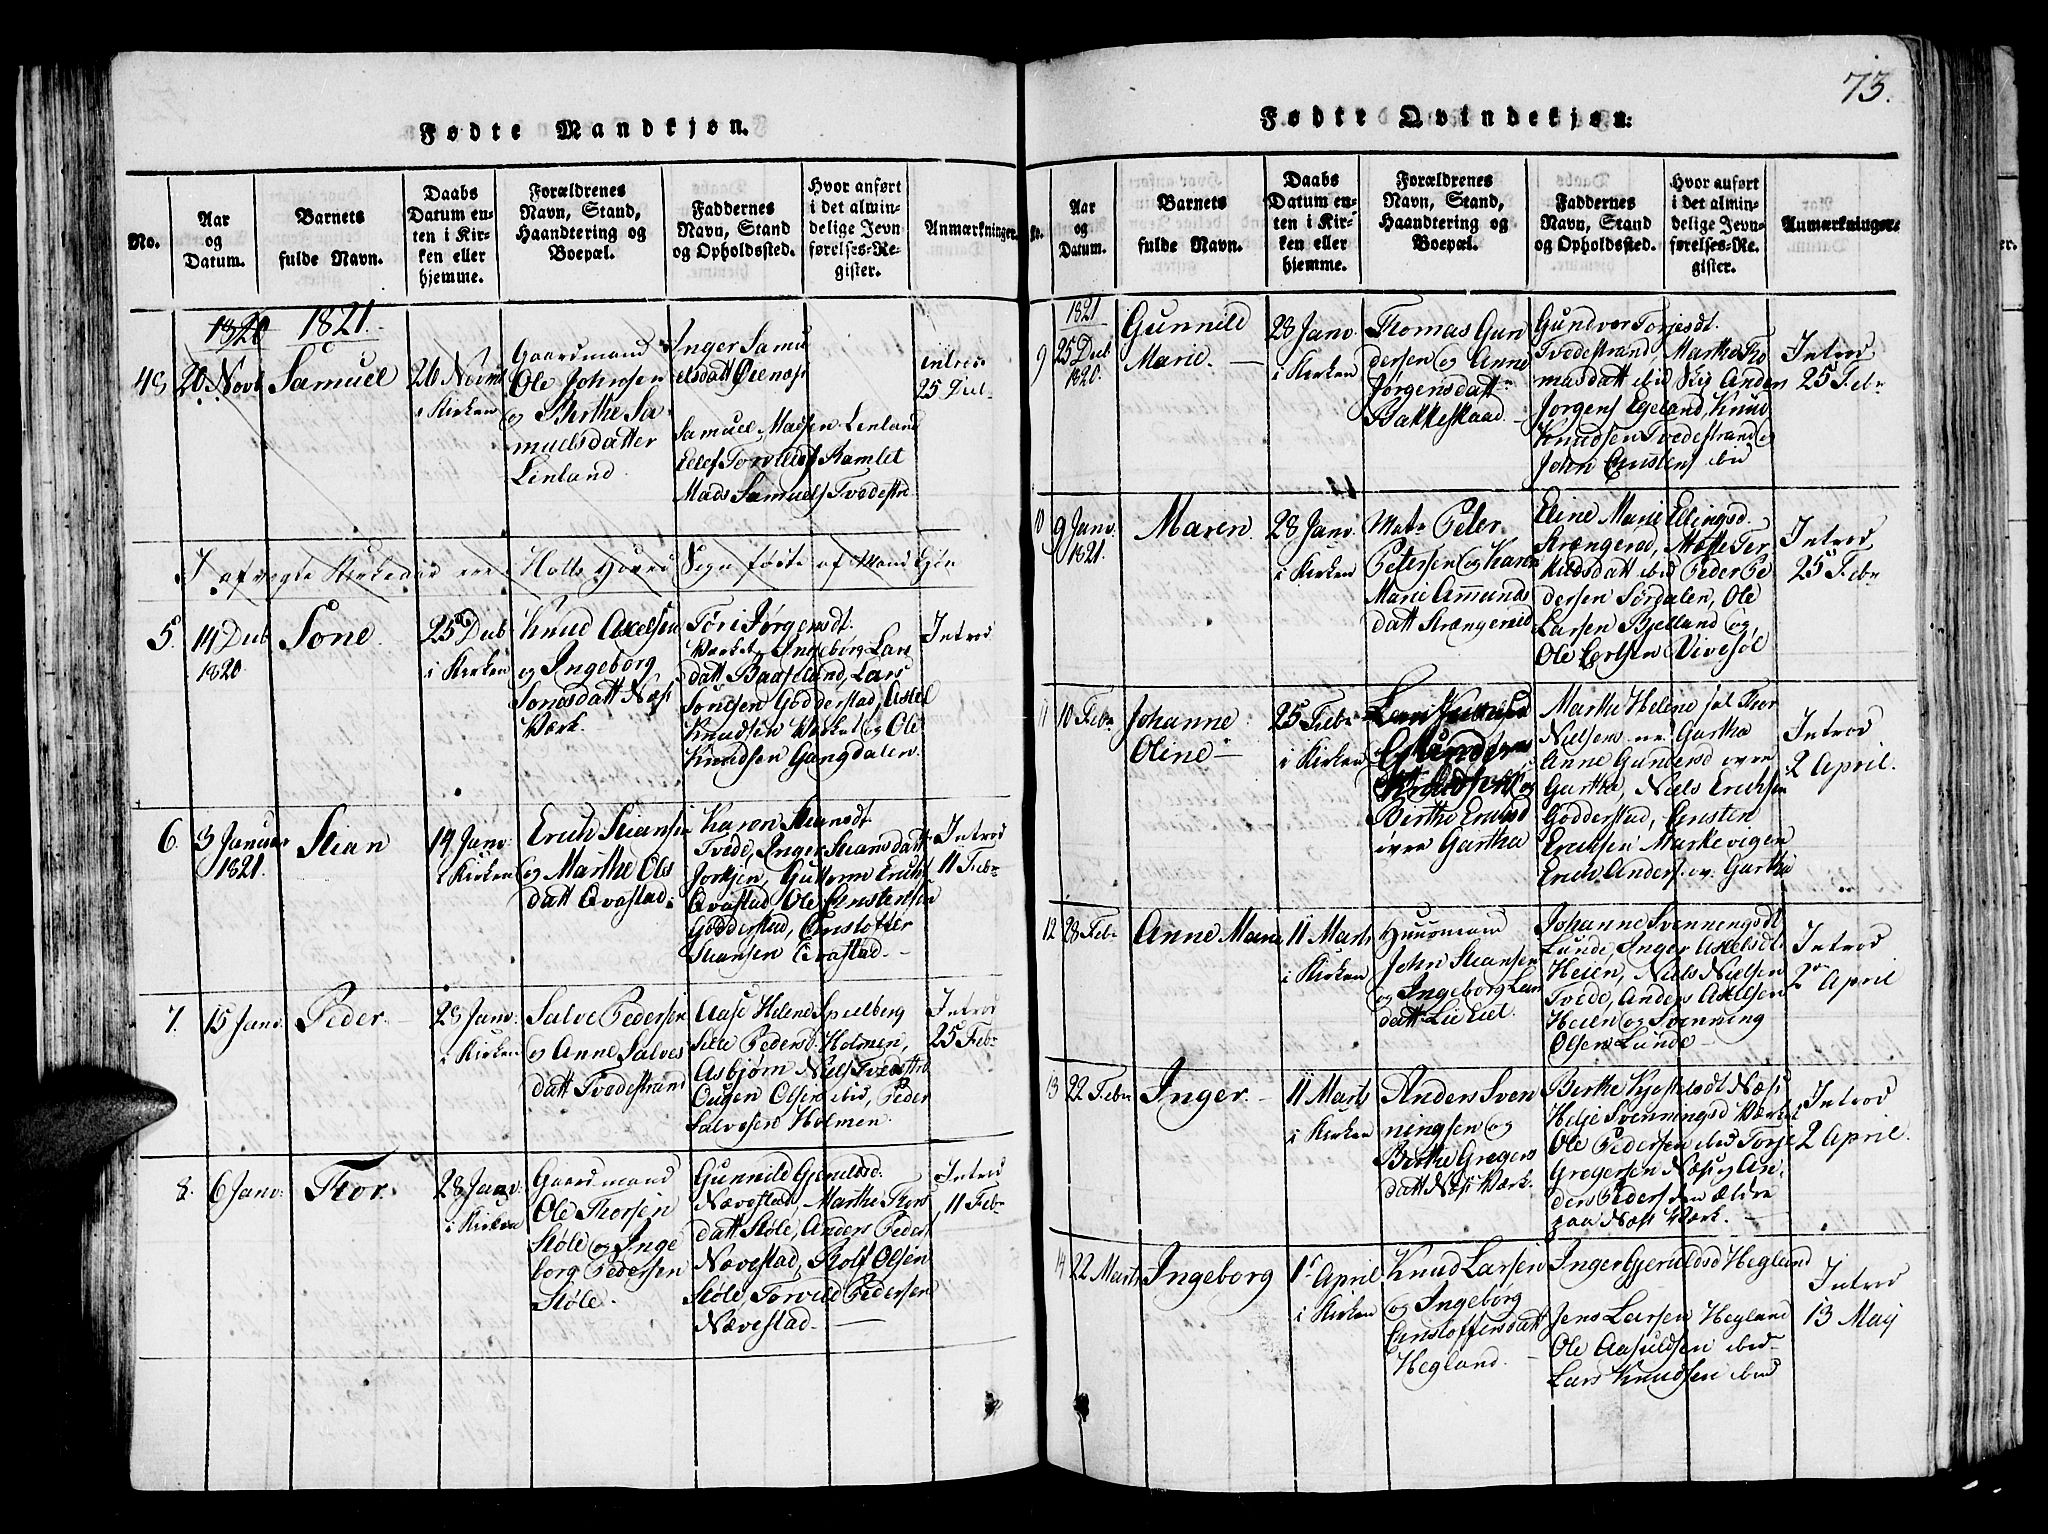 73.
Fødte Mandkjøn.
No.
Aar
og
Datum.
Barnets
fulde Navn.
Daabs
Datum en-
ten i Kir-
ken eller
hjemme.
Forældrenes
Navn, Stand,
Haandtering og
Boepæl.
Faddernes
Navn, Stand
og Opholdssted.
Hvor anført
i det almin-
delige Jevn-
førelses-Re-
gister.
Anmærkninger.
1820 1821.
49
20 Novb
Samuel
26 Novmb
i Kirken
Gaardmand
Ole Johnsen
og Berthe Sa-
muelsdatter
Lenland.
Inger Samu
elsdatt
Samuel Madsen Lenland
Mads Samuels Tvedestr.
intro
25 Dec
5.
14 Decb
1820
Sone.
25 Decb
i Kirken
Knud Axelsen
og Ingeborg
Sonesdatt Næs
Værk.
Tøri Jørgensdt.
Værket, Ingeborg Lars
datt Baasland, Lars
Sørensen Godderstad, Axel
Knudsen Værket og Ole
Knudsen Gangdalen.
Introd
6.
3 Januar
1821.
Stian
14 Janv
i Kirken
Erich Stiansen
og Marthe Ols
datt Qvastad.
Karen Stiansdt
Tvede, Inger Stiansdatt
Guttorm Erichs
Qvastad, Ole Christensen
Godderstad, Christoffer
Stiansen Qvastad.
Introd
11 Febr
7.
15 Janv.
Peder
28 Janv.
i Kirken
Salve Pedersen
og Anne Salves
datt Tvedestrand
Aase Helene Spielberg
Pedersd. Holmen,
Asbjørn Niels Tvedestr
Ougen Olsen ibid, Peder
Salvesen Holmen.
Introd
25 Febr
8.
6 Janv.
Thor.
28 Janv.
i Kirken
Gaardmand
Ole Thorsen
Støle og Inge
borg Pedersen
Støle.
Gunnild
Nævestad, Marthe Thors
datt Støle, Anders Peders
Nævestad, Rolf Olsen
Støle, Torvild Pedersen
Nævestad.
Introd
11 Febr
Fødte Qvindekjøn:
No.
Aar
og
Datum.
Barnets
fulde Navn.
Daabs
Datum en-
ten i Kir-
ken eller
hjemme.
Forældrenes
Navn, Stand,
Haandtering og
Boepæl.
Faddernes
Navn, Stand
og Opholdssted.
Hvor anført
i det almin-
delige Jevn-
førelses-Re-
gister.
Anmærkninger.
1821
9
25 Decb
1820.
Gunnild
Marie.
28 Janv.
i Kirken
Thomas Gun
dersen og Anne
Jørgensdatt
Bakkeskaad.
Gundvor Torjesdt.
Tvedestrand, Marthe Tho
masdatt ibid Anders
Jørgens Egeland, Knud
Knudsen Tvedestrand og
John Christens ibid
Introd
25 Febr
10
9 Janv.
1821.
Maren
28 Janv
i Kirken
Peter
Petersen og Karen
Marie Amunds
datt Strængereid
Eline Marie Ellingsd.
Strængereid, Mette Ter
kildsdatt ibid Peder Pe
dersen Sørdalen, Ole
Larsen Bjelland og
Ole Carlsen Vivesøl
Introd
25 Febr
11
10 Febr
Johanne
Oline
25 Febr
i Kirken
Gunder
Knudsen og
Birthe Erichsd
øvre Gartha
Marthe Helene
Nielsen Gartha
Anne Gundersd øvre
Gartha, Niels Erichsen
Godderstad, Christen
Erichsen Markevigen
Erich Anders. øv. Gartha
Introd
2 April.
12
28 Febr
Anne Marie
11 Marts
i Kirken
Huusmand
John Stiansen
og Ingeborg Lars
datt Lie Eiet.
Johanne Svenningsdt
Lunde, Inger Axelsdt
Heien, Niels Nielsen
Tvede, Anders Axelsen
Heien og Svenning
Olsen Lunde
Introd
2 April
13
22 Febr
Inger.
11 Marts
i Kirken
Anders Sven
ningsen og
Birthe Gregers
datt Næs Værk.
Birthe Næs
Helje Svenningsd Værket
Ole Pedersen ibid Torje
Gregersen Næs og An
ders Peders den Ældre
paa Næs Værk.
Introd
2 April.
14
22 Marts
Ingeborg
1st April
i Kirken
Knud Larsen
og Ingeborg
Christoffersdatt
Hegland.
Inger Gjeruldsd Hegland
Jens Larsen Hegland
Ole Aasuldsen ibid
Lars Knudsen ibid
Introd
13 Maj